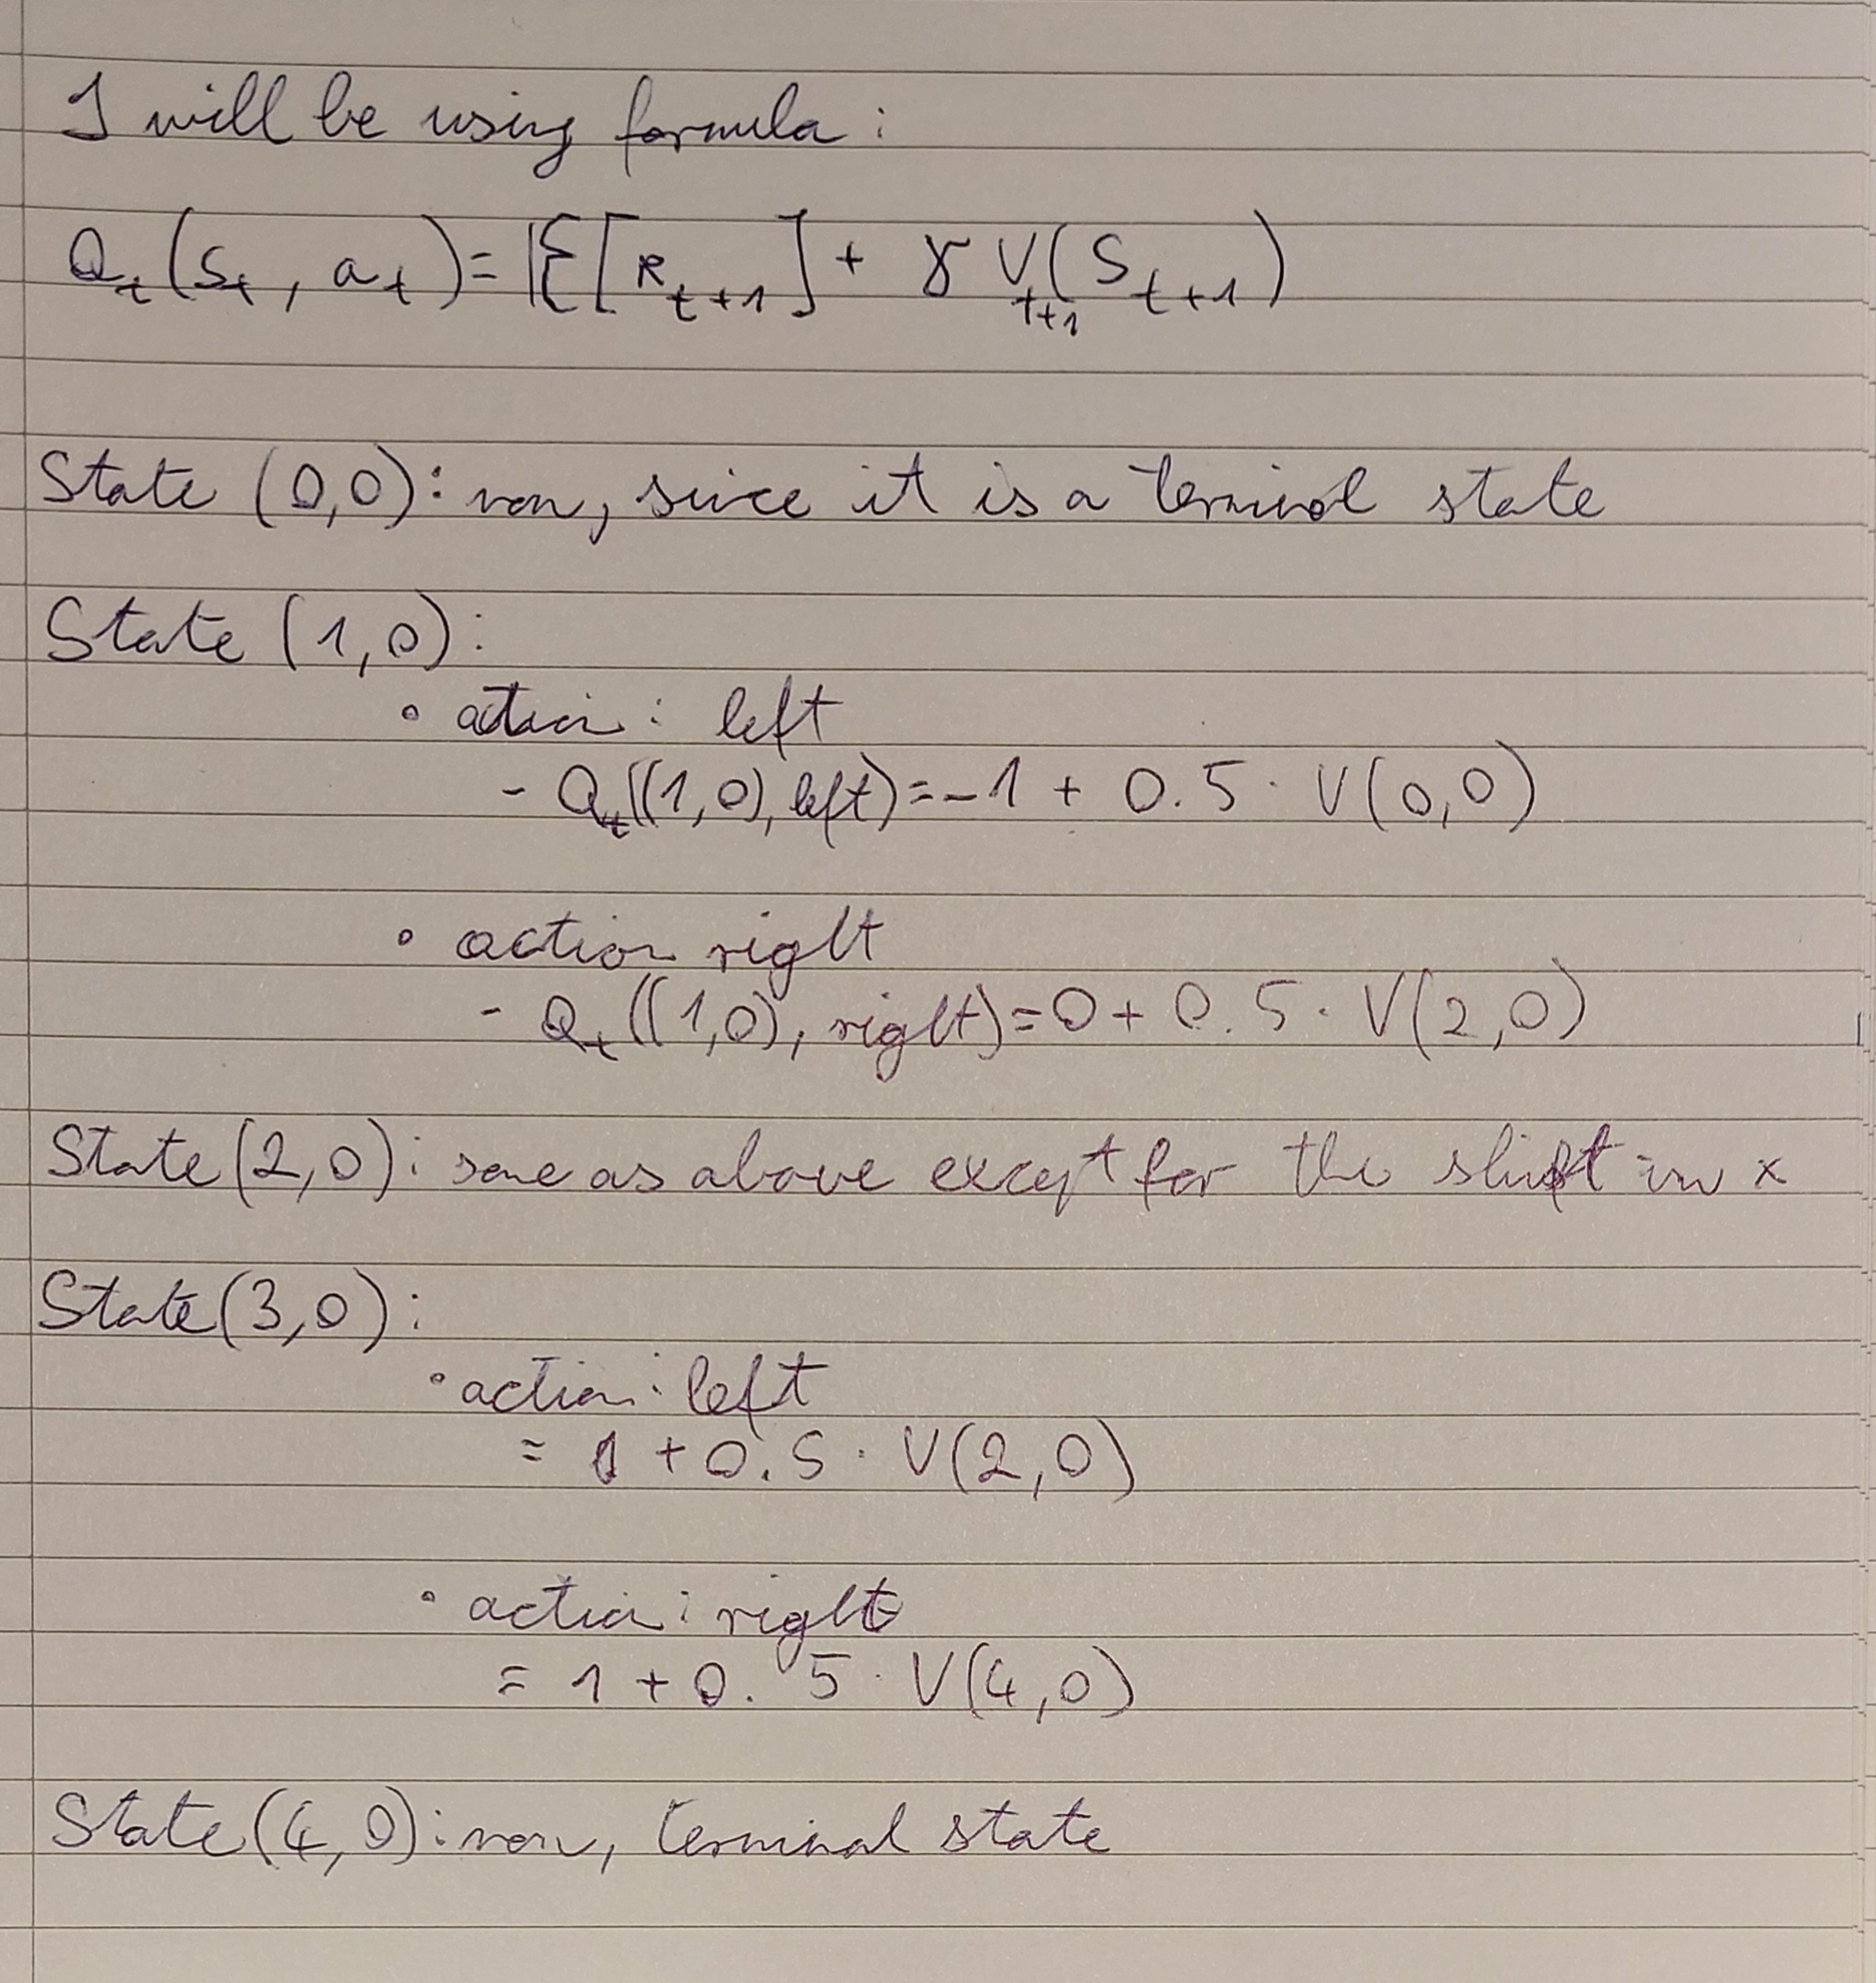 I will be using formula:
Q_t(S_t, a_t) = 𝔼[R_{t+1}] + γ V_{t+1}(S_{t+1})
State (0,0): non, since it is a terminal state
State (1,0):
◦ action: left
- Q_t((1,0), left) = -1 + 0.5 · V(0,0)
◦ action right
- Q_t((1,0), right) = 0 + 0.5 · V(2,0)
State (2,0): same as above except for the shift in x
State (3,0):
◦ action: left
= 1 + 0.5 · V(2,0)
◦ action: right
= 1 + 0.5 · V(4,0)
State (4,0): non, terminal state